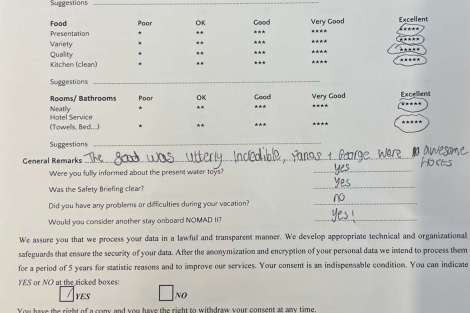 Suggestions
Food Poor OK Good Very Good Excellent
Presentation * ** *** **** *****
Variety * ** *** **** *****
Quality * ** *** **** *****
Kitchen (clean) * ** *** **** *****
Suggestions
Rooms/ Bathrooms Poor OK Good Very Good Excellent
Neatly * ** *** **** *****
Hotel Service
(Towels, Bed...) * ** *** **** *****
Suggestions
General Remarks The food was utterly incredible, + George were awesome
hosts
Were you fully informed about the present water toys? yes
Was the Safety Briefing clear? yes
Did you have any problems or difficulties during your vacation? no
Would you consider another stay onboard NOMAD II? yes!
We assure you that we process your data in a lawful and transparent manner. We develop appropriate technical and organizational
safeguards that ensure the security of your data. After the anonymization and encryption of your personal data we intend to process them
for a period of 5 years for statistic reasons and to improve our services. Your consent is an indispensable condition. You can indicate
YES or NO at the ticked boxes:
YES NO
You have the right of a copy and you have the right to withdraw your consent at any time.